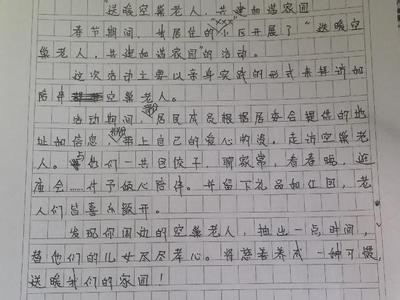 "送暖空巢老人，共建和谐家园
春节期间，我居住的"xxx"小区开展了"送暖空
巢老人，共建和谐家园"的活动。
这次活动主要以亲身实践的形式来拜访和
陪伴空巢老人。
活动期间，居民成员根据居委会提供的地
址和信息，带上自己的爱心物资，走访空巢老
人。与他们一共包饺子，聊家常，看春晚，逛
庙会……给予暖心陪伴。并留下礼品和红包，老
人们皆喜乐颜开。
发现你周边的空巢老人，抽出一点时间，
替他们的儿女尽尽孝心。将慈善养成一种习惯，
送暖我们的家园！